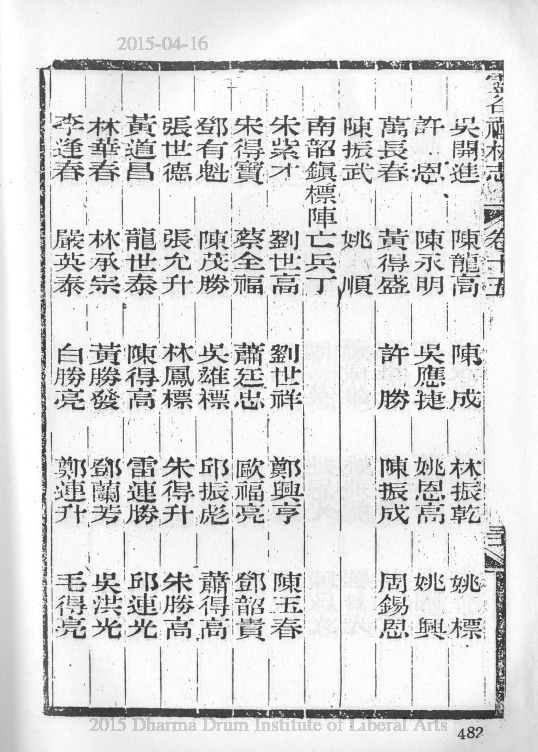 2015-04-16
靈谷禪林志 卷十五
吳開進 陳龍高 陳成 林振乾 姚標
許恩 陳永明 吳應捷 姚恩高 姚興
萬長春 黃得盛 許勝 陳振成 周錫恩
陳振武 姚順
南韶鎮標陣亡兵丁
朱紫才 劉世高 劉世祥 鄭興亨 陳玉春
朱得寶 蔡全福 蕭廷忠 歐福亮 鄧韶貴
鄧有魁 陳茂勝 吳雄標 邱振彪 蕭得高
張世德 張允升 林鳳標 朱得升 朱勝高
黃道昌 龍世泰 陳得高 雷連勝 邱連光
林華春 林承宗 黃勝發 鄧蘭芳 吳洪光
李逢春 嚴英泰 白勝亮 鄭連升 毛得亮
2015 Dharma Drum Institute of Liberal Arts
482